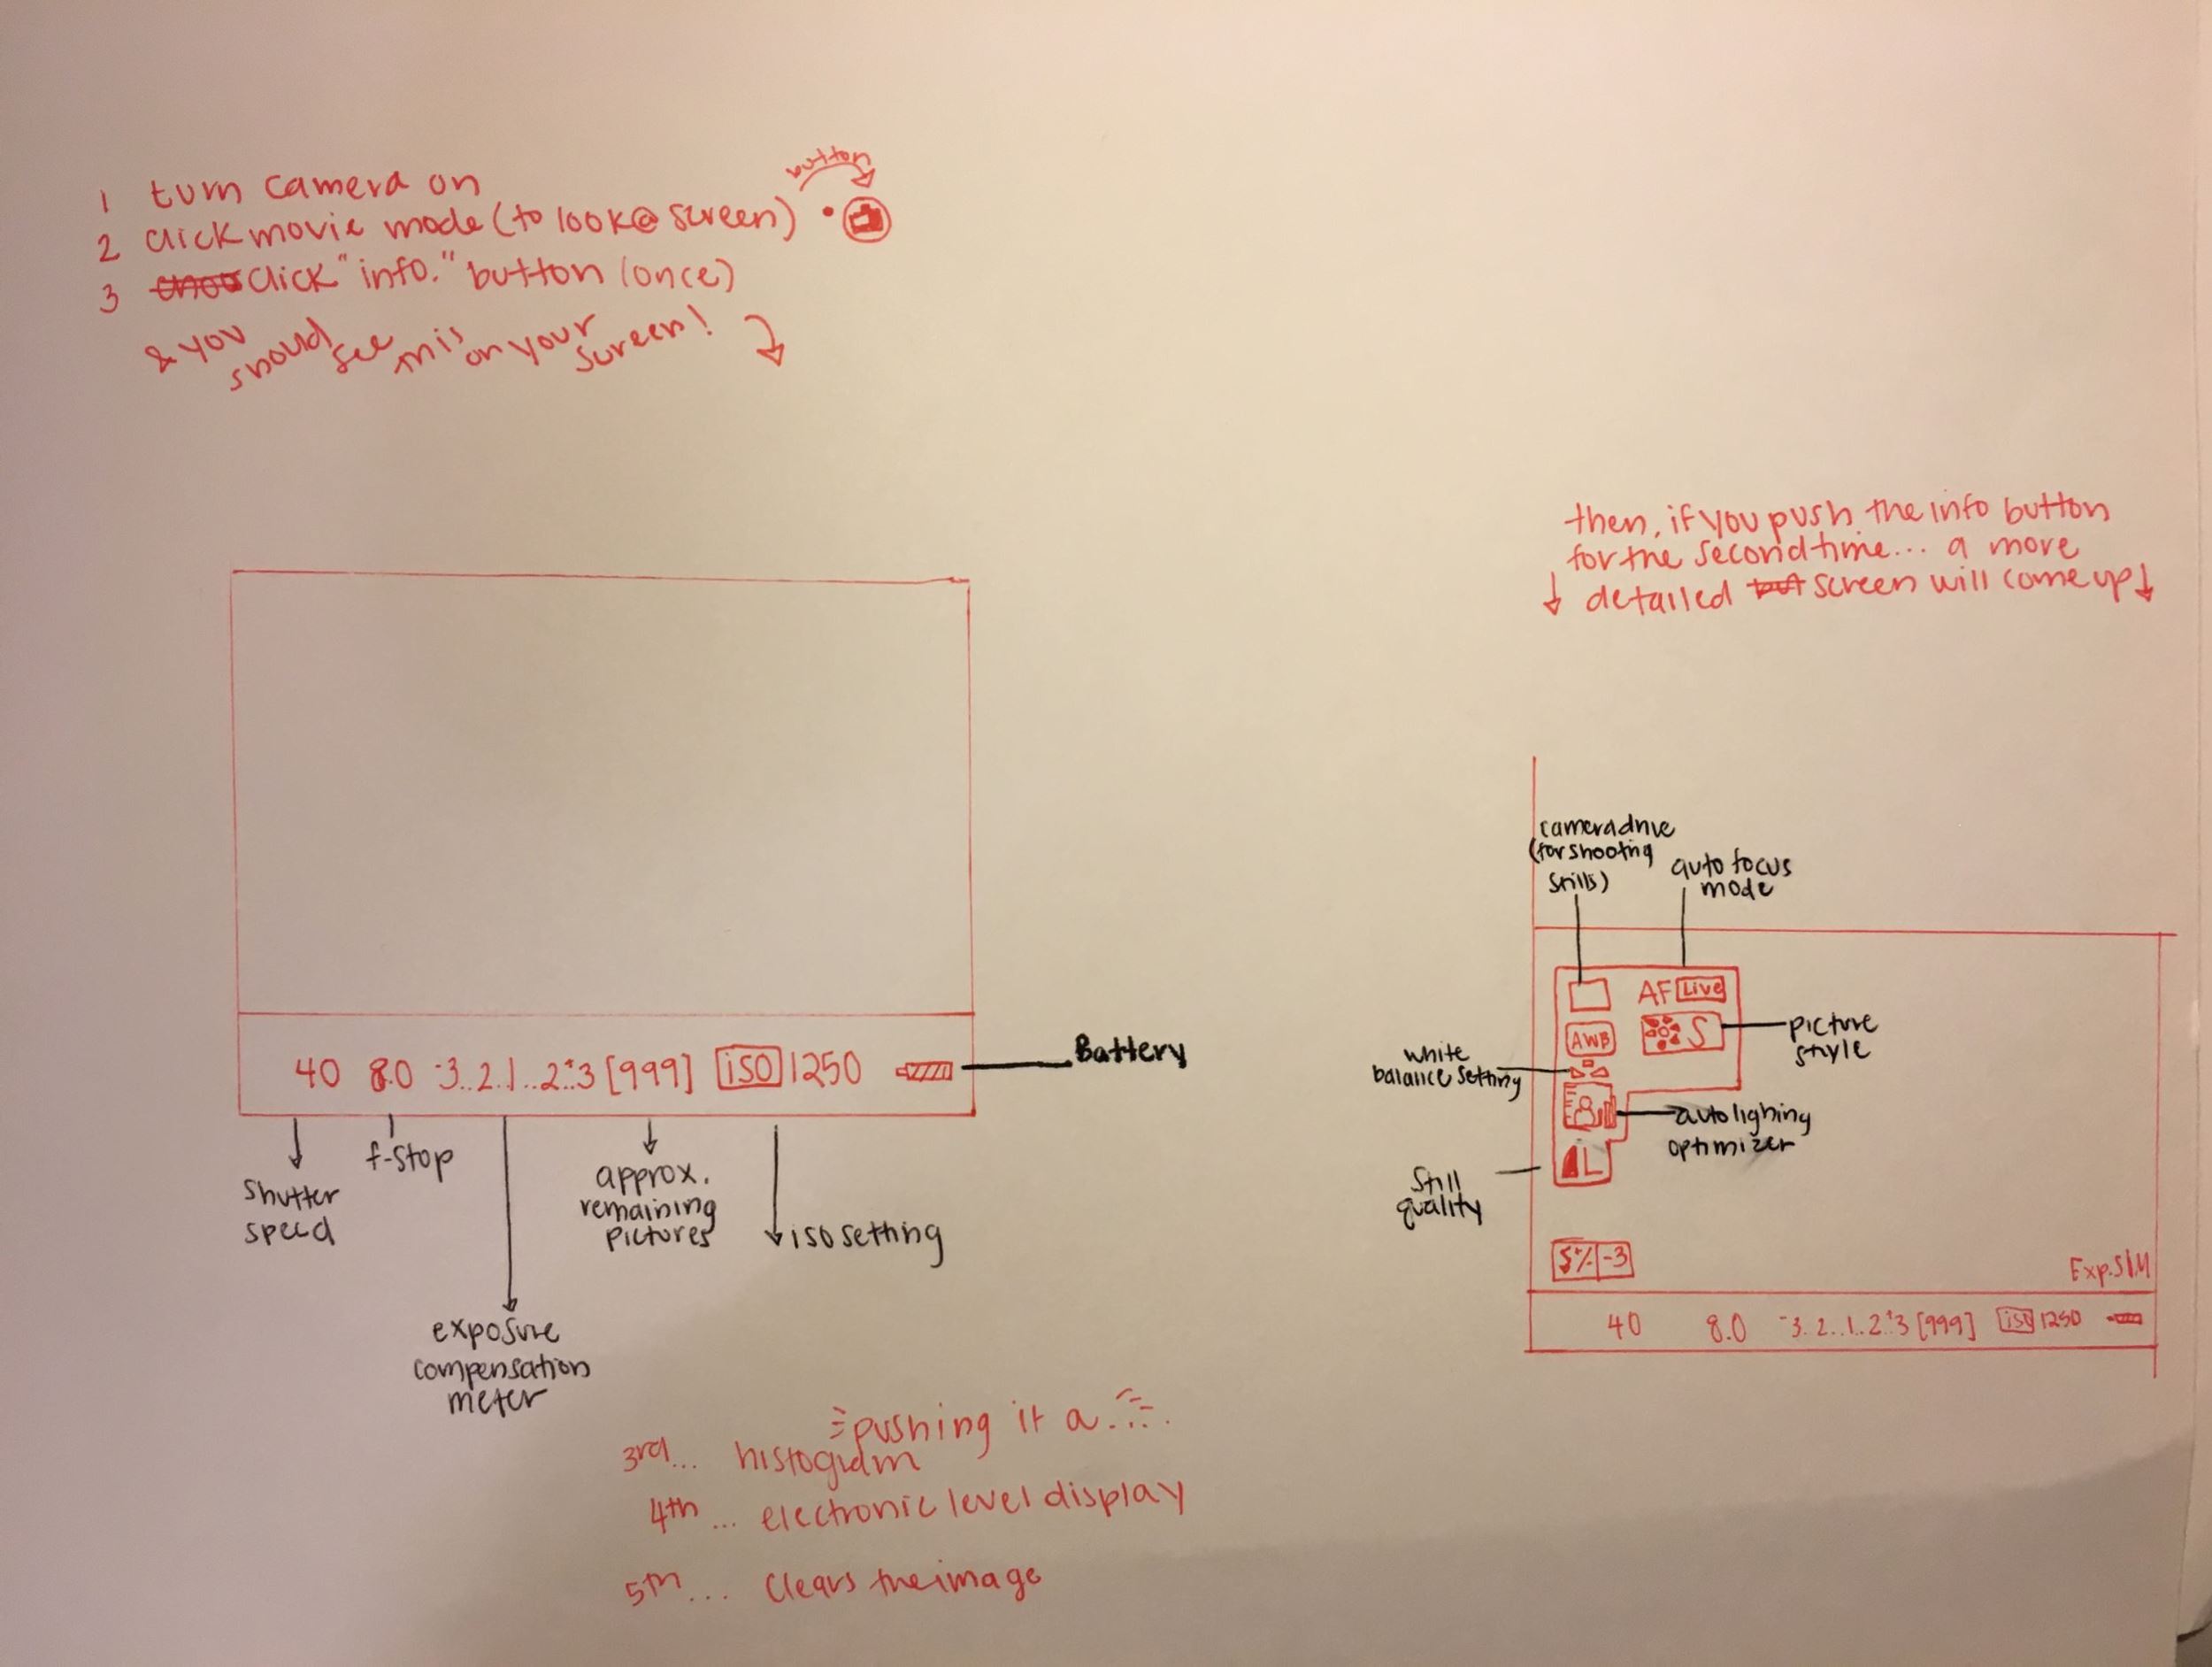 1 turn camera on
button
2 click movie mode (to look@ screen)
3 click "info." button (once)
& you should see this on your screen!
then, if you push the info button
for the second time... a more
detailed screen will come up
40 8.0 -3..2.1..2.:+3 [999] iso 1250
Battery
shutter
speed
f-stop
exposure
compensation
meter
approx.
remaining
pictures
iso setting
camera drive
(for shooting
stills)
auto focus
mode
AF Live
AWB
S
picture
style
white
balance setting
auto lighing
optimizer
L
Still
quality
-3
Exp.SIM
40 8.0 -3..2..1..2.+3 [999] iso 1250
pushing it a...
3rd... histogram
4th... electronic level display
5th... clears the image